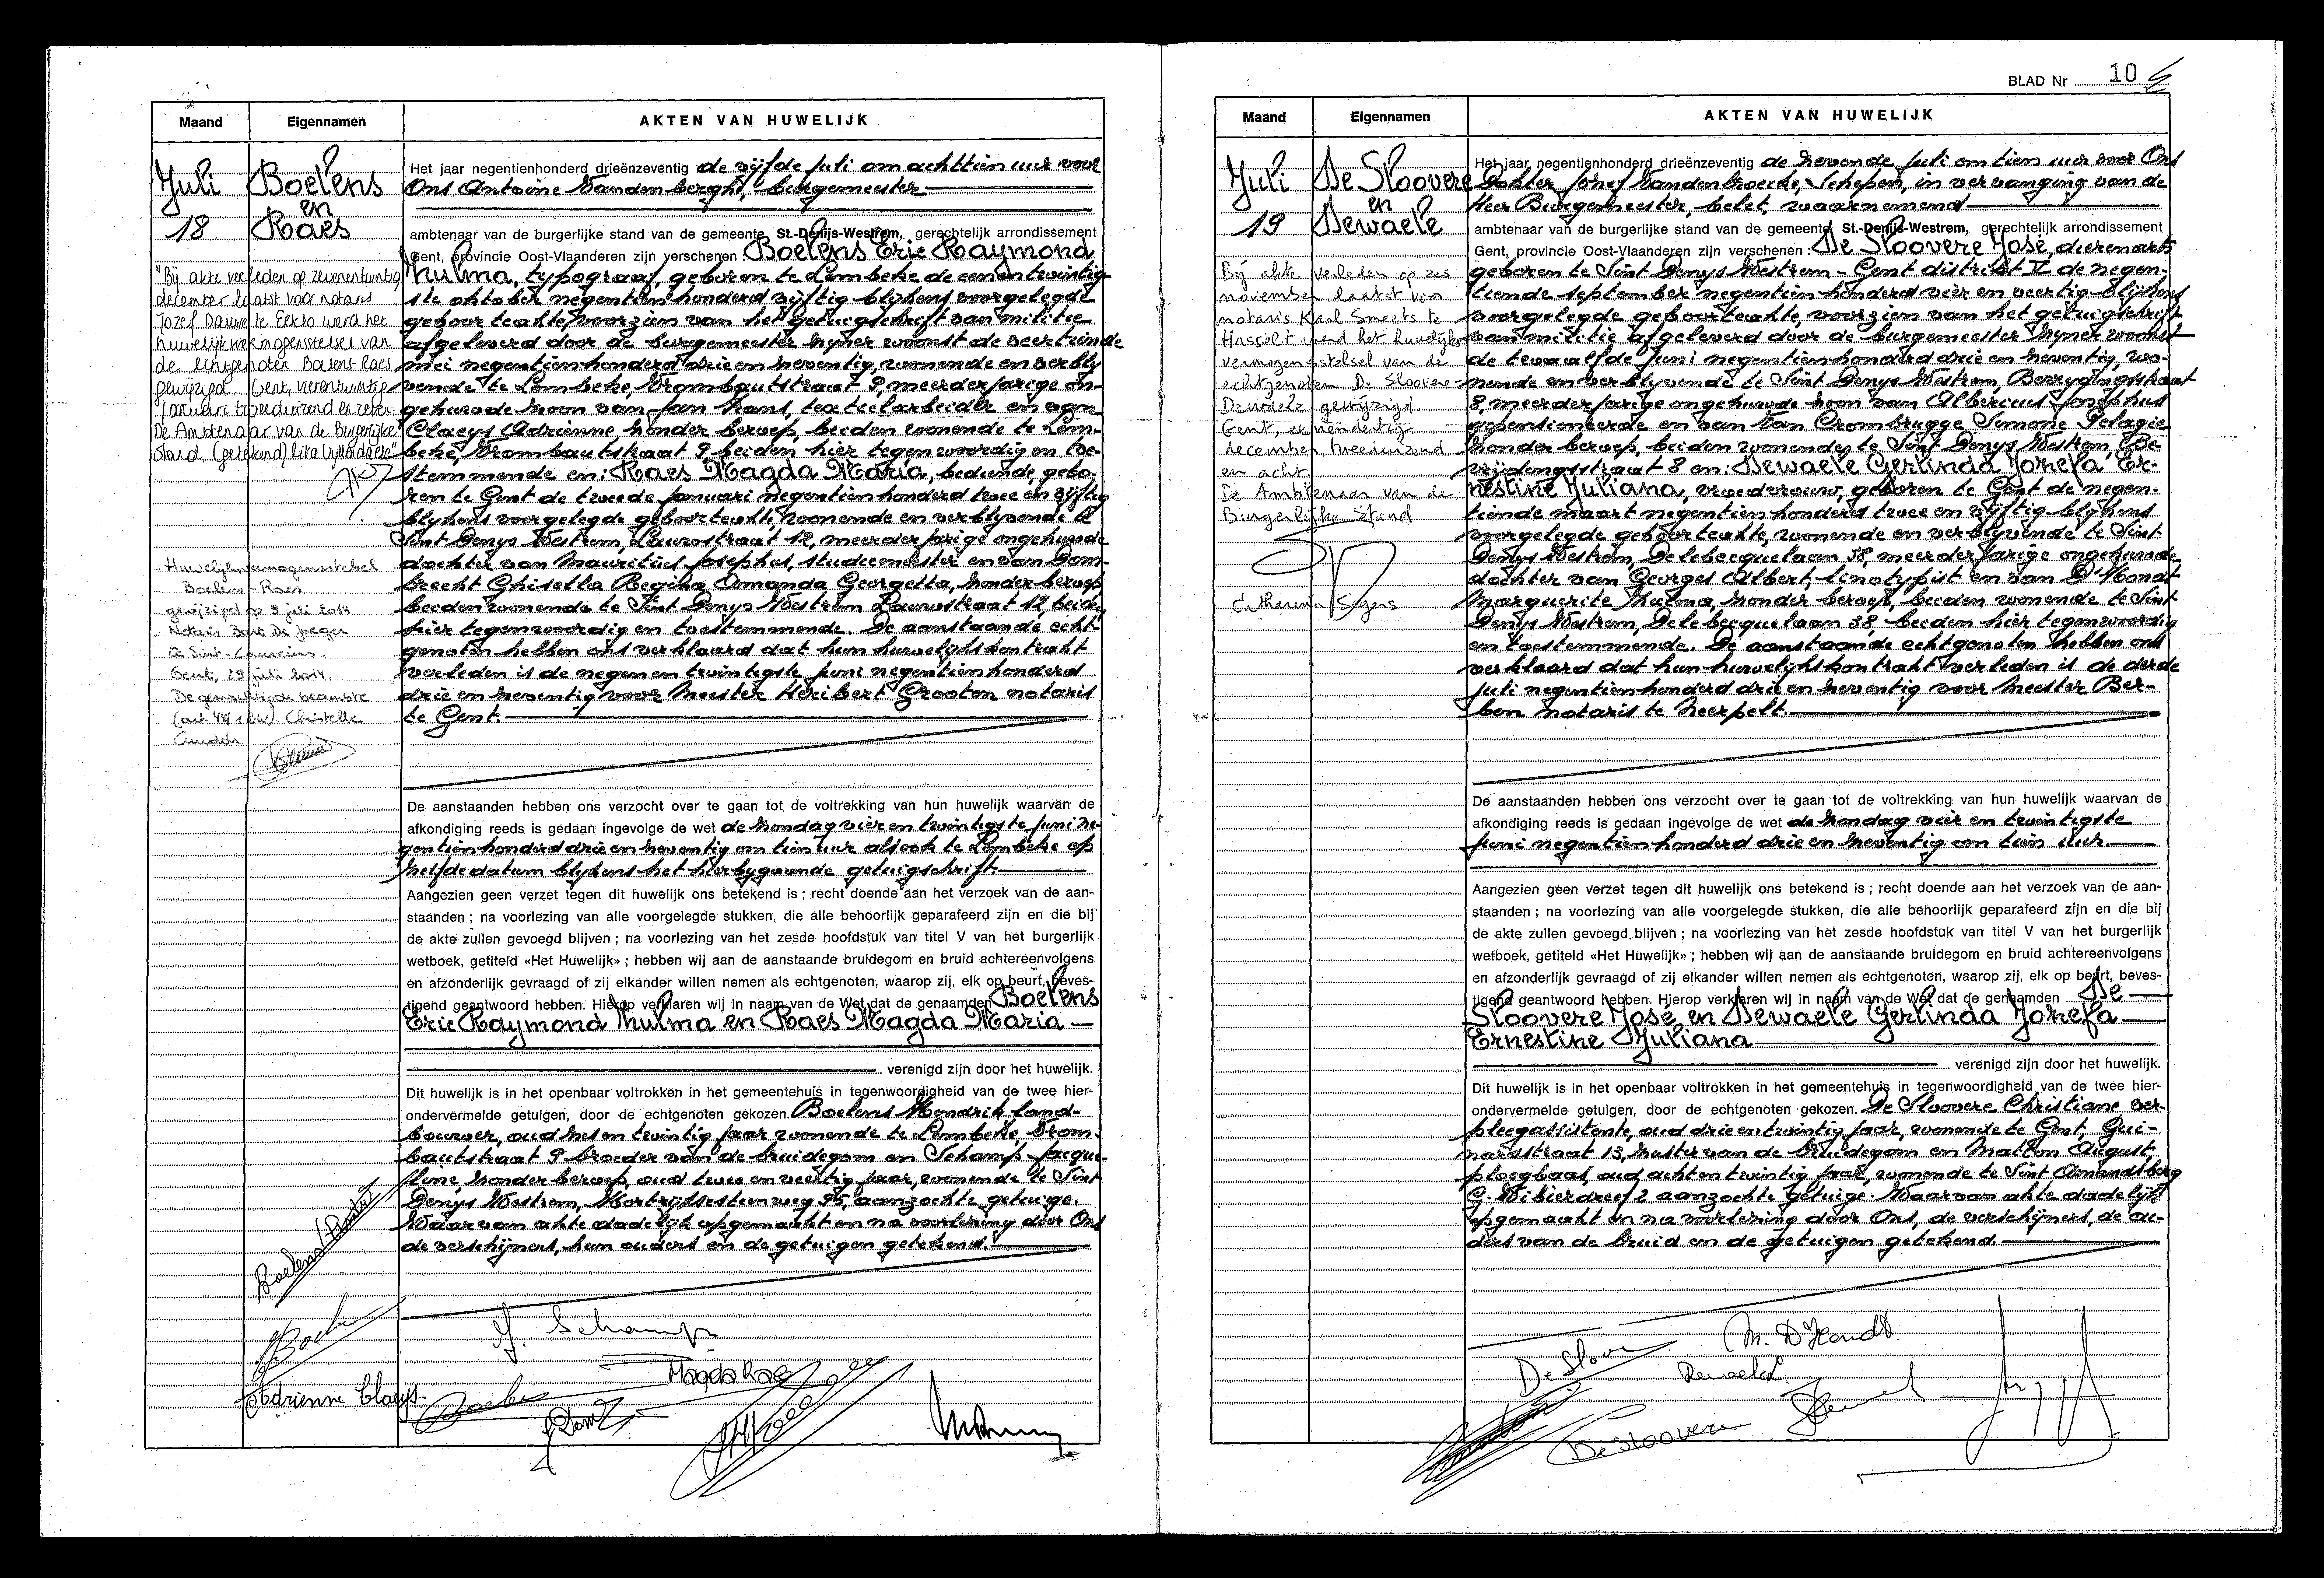 Maand
Eigennamen
AKTEN VAN HUWELIJK
Juli
18
Boelens
en
Raes
Het jaar negentienhonderd drieënzeventig de vijfde juli om achttien uur voor
Ons Antoine Vanden berghe, burgemeester
ambtenaar van de burgerlijke stand van de gemeente St.-Denijs-Westrem, gerechtelijk arrondissement
Gent, provincie Oost-Vlaanderen zijn verschenen : Boelens Eric Raymond
Thulma, typograaf, geboren te Lembeke de eenentwintig-
ste oktober negentienhonderd vijftig blijkens voorgelegde
geboorteakte, voorzien van het getuigschrift van militie
afgeleverd door de burgemeester zijner woonst de veertiende
mei negentienhonderd drie en zeventig, wonende en verbly
vende te Lembeke, Brombautstraat 9, meerderjarige on-
gehuwde zoon van Jan Frans, textielarbeider en van
Claeys Adrienne, zonder beroep, beiden wonende te Lem-
beke, Brombautstraat 9 beiden hier tegenwoordig en toe-
stemmende en: Raes Magda Maria, bediende, gebo-
ren te Gent de tweede januari negentienhonderd twee en vijftig
blykens voorgelegde geboorteakte, wonende en verblyvende te
Sint Denys Westrem, Laurastraat 12, meerderjarige ongehuwde
dochter van Mauritius Josephus, studiemeester en van Dom-
brecht Ghisella Regina Amanda Georgetta, zonder beroep
beiden wonende te Sint Denys Westrem Laurastraat 12 beide
hier tegenwoordig en toestemmende. De aanstaande echt-
genoten hebben ons verklaard dat hun huwelykskontrakt
verleden is de negen en twintigste juni negentienhonderd
drie en zeventig voor Meester Heribert Grooten notaris
te Gent.
"Bij akte verleden op zevenentwintig
december laatst voor notaris
Jozef Dauwe te Eeklo werd het
huwelijksvermogensstelsel van
de echtgenoten Boelens-Raes
gewijzigd Gent, vierentwintig
januari tweeduizend en zeven.
De Ambtenaar van de Burgerlijke
Stand (getekend) Rita Uyttendaele"
Huwelijksvermogensstelsel
Boelens-Raes
gewijzigd op 9 juli 2014
Notaris Bart De Jaeger
te Sint-Laureins.
Gent, 29 juli 2014.
De gemachtigde beambte
(art. 44/1 BW). Christelle
De aanstaanden hebben ons verzocht over te gaan tot de voltrekking van hun huwelijk waarvan de
afkondiging reeds is gedaan ingevolge de wet de zondag vier en twintigste juni ne-
gentienhonderd drie en zeventig om tien uur alsook te Lembeke op
zelfde datum blykens het hierbygaande getuigschrift.
Aangezien geen verzet tegen dit huwelijk ons betekend is ; recht doende aan het verzoek van de aan-
staanden ; na voorlezing van alle voorgelegde stukken, die alle behoorlijk geparafeerd zijn en die bij
de akte zullen gevoegd blijven ; na voorlezing van het zesde hoofdstuk van titel V van het burgerlijk
wetboek, getiteld «Het Huwelijk» ; hebben wij aan de aanstaande bruidegom en bruid achtereenvolgens
en afzonderlijk gevraagd of zij elkander willen nemen als echtgenoten, waarop zij, elk op beurt, beves-
tigend geantwoord hebben. Hierop verklaren wij in naam van de Wet dat de genaamden Boelens
Eric Raymond Thulma en Raes Magda Maria
verenigd zijn door het huwelijk.
Dit huwelijk is in het openbaar voltrokken in het gemeentehuis in tegenwoordigheid van de twee hier-
ondervermelde getuigen, door de echtgenoten gekozen. Boelens Hendrik land-
bouwer, oud zes en twintig jaar wonende te Lembeke, Brom-
bautstraat 9 broeder van de bruidegom en Schamp Jacque-
line zonder beroep, oud twee en veertig jaar, wonende te Sint
Denys Westrem, Kortrijksesteenweg 95, aanzochte getuige.
Waarvan akte dadelijk opgemaakt en na voorlezing door Ons
de verschijners, hun ouders en de getuigen getekend.
J. Schamp
Magda Raes
Adrienne Claeys
BLAD Nr 10
Maand
Eigennamen
AKTEN VAN HUWELIJK
Juli
19
De Sloovere
en
Dewaele
Het jaar negentienhonderd drieënzeventig de zevende juli om tien uur voor Ons
Dokter Jozef Vandenbroecke, Schepen, in vervanging van de
Heer Burgemeester, belet, waarnemend
ambtenaar van de burgerlijke stand van de gemeente St.-Denijs-Westrem, gerechtelijk arrondissement
Gent, provincie Oost-Vlaanderen zijn verschenen : De Sloovere José, dierenarts
geboren te Sint Denys Westrem - Gent distrikt V de negen-
tiende september negentienhonderd vier en veertig blijkens
voorgelegde geboorteakte, voorzien van het getuigschrift
van militie afgeleverd door de burgemeester zijner woonst
de twaalfde juni negentienhonderd drie en zeventig, wo-
nende en verblyvende te Sint Denys Westrem, Bevrydingsstraat
8, meerderjarige ongehuwde zoon van Albericus Josephus
gepensioneerde en van Van Crombrugge Simone Pelagie
zonder beroep, beiden wonende te Sint Denys Westrem, Be-
vrijdingsstraat 8 en: Dewaele Gerlinda Jozefa Er-
nestine Juliana, vroedvrouw, geboren te Gent de negen-
tiende maart negentienhonderd twee en vijftig blijkens
voorgelegde geboorteakte, wonende en verblyvende te Sint
Denys Westrem, Delebecquelaan 38, meerderjarige ongehuwde
dochter van Georges Albert, linotypist en van D'Hondt
Marguerite Thulma, zonder beroep, beiden wonende te Sint
Denys Westrem, Delebecquelaan 38, beiden hier tegenwoordig
en toestemmende. De aanstaande echtgenoten hebben ons
verklaard dat hun huwelykskontrakt verleden is de derde
juli negentienhonderd drie en zeventig voor Meester Ber-
ben notaris te Neerpelt.
Bij akte verleden op zes
november laatst van
notaris Karl Smeets te
Hasselt werd het huwelijks-
vermogensstelsel van de
echtgenoten De Sloovere -
Dewaele gewijzigd.
Gent, eenendertig
december tweeduizend
en acht.
De Ambtenaar van de
Burgerlijke Stand
Catharina Segers
De aanstaanden hebben ons verzocht over te gaan tot de voltrekking van hun huwelijk waarvan de
afkondiging reeds is gedaan ingevolge de wet de zondag vier en twintigste
juni negentienhonderd drie en zeventig om tien uur.
Aangezien geen verzet tegen dit huwelijk ons betekend is ; recht doende aan het verzoek van de aan-
staanden ; na voorlezing van alle voorgelegde stukken, die alle behoorlijk geparafeerd zijn en die bij
de akte zullen gevoegd blijven ; na voorlezing van het zesde hoofdstuk van titel V van het burgerlijk
wetboek, getiteld «Het Huwelijk» ; hebben wij aan de aanstaande bruidegom en bruid achtereenvolgens
en afzonderlijk gevraagd of zij elkander willen nemen als echtgenoten, waarop zij, elk op beurt, beves-
tigend geantwoord hebben. Hierop verklaren wij in naam van de Wet dat de genaamden De
Sloovere José en Dewaele Gerlinda Jozefa
Ernestine Juliana
verenigd zijn door het huwelijk.
Dit huwelijk is in het openbaar voltrokken in het gemeentehuis in tegenwoordigheid van de twee hier-
ondervermelde getuigen, door de echtgenoten gekozen. De Sloovere Christiane ver-
pleegassistente, oud drie en twintig jaar, wonende te Gent, Gui-
nardstraat 13, zuster van de bruidegom en Matton August,
ploegbaas, oud acht en twintig jaar, wonende te Sint Amandsberg
G. Wibierdreef 2 aanzochte getuige. Waarvan akte dadelijk
opgemaakt en na voorlezing door Ons, de verschijners, de ou-
ders van de bruid en de getuigen getekend.
M. D'Hondt.
De Sloovere